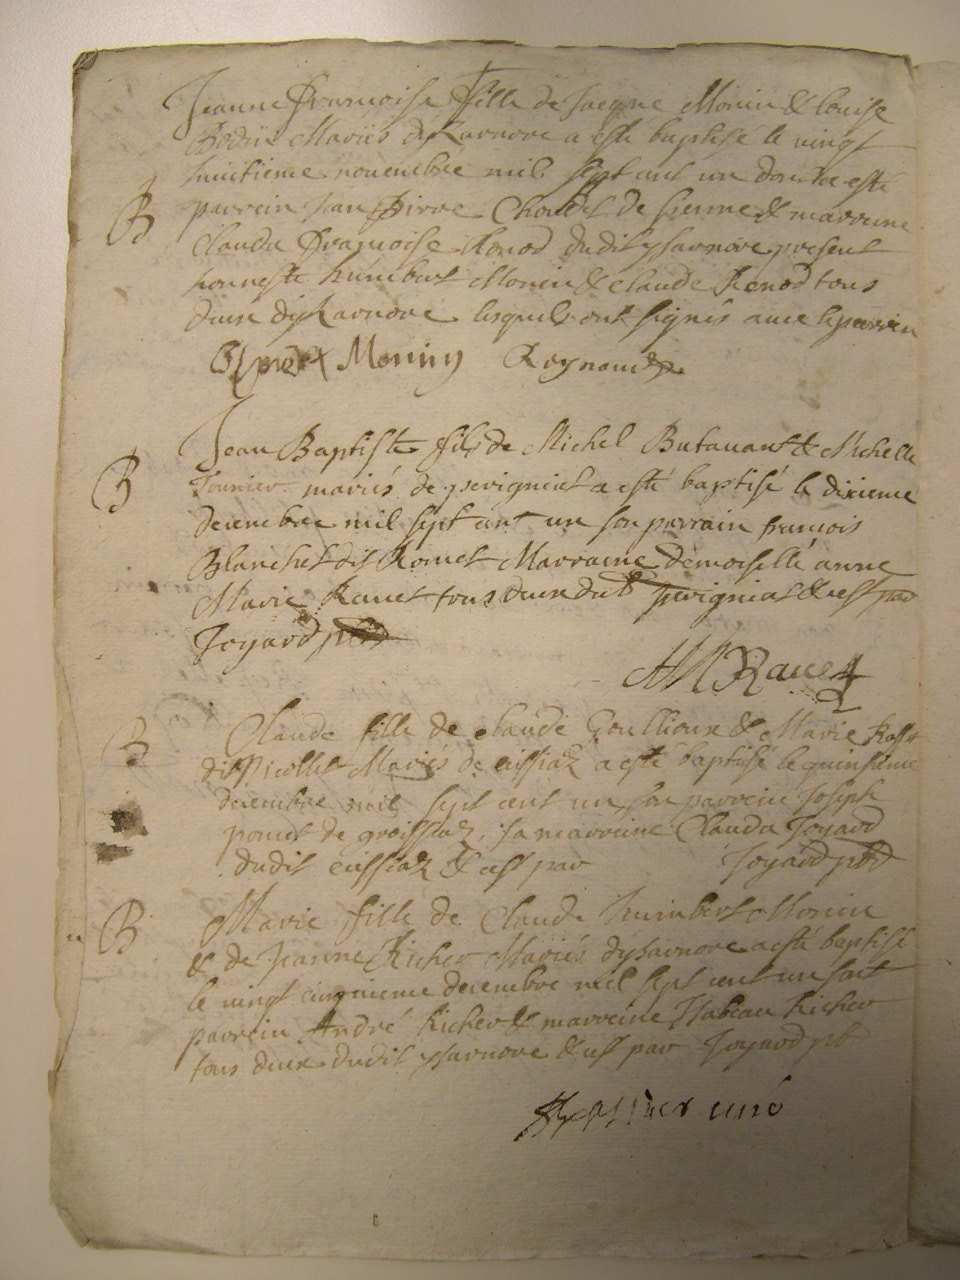 Jeanne Françoise fille de Jacque Monin & Louise
Mariés dyzarnore a esté baptisé le vingt
huitieme nouembre mil sept cent un dont a esté
B parrein Jean Pirre de & marreine
Clauda Françoise Renod dudit ysarnore present
honneste humbert Monin & Claude Renod tous
deux dizarnore lesquels ont signés auec le parrein
Monin Reynaud
Jean Baptiste fils de Michel Butauant & Michelle
B Tournier mariés de peerigniat a esté baptisé le dixieme
decembre mil sept cent un son parrain françois
Blanchet dit Romet Marraine demoiselle anne
Marie Rauet tous deux dud perigniat & est par
Joyard pbre
AM Rauet
B Claude fille de claude Goullioux & Marie
dit Nicollet Mariés de ceissiaz a esté baptisé le quinsieme
decembre mil sept cent un son parrein Joseph
poncet de groissiaz, sa marreine Clauda Joyard
dudit ceissiaz & est par Joyard pbre
B Marie fille de Claude humbert Monin
& de Jeanne Richer Mariés dysarnore a esté baptisé
le vingt cinquieme decembre mil sept cent un sont
parrein André Richer & marreine Isabeau Richer
tous deux dudit ysarnore & est par Joyard pb
curé